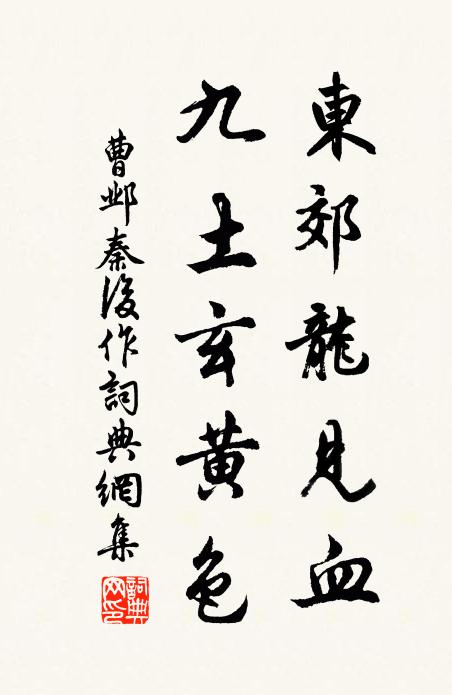 東郊龍見血
九土玄黃色
曹邺秦後作詞典網集
詞典網印